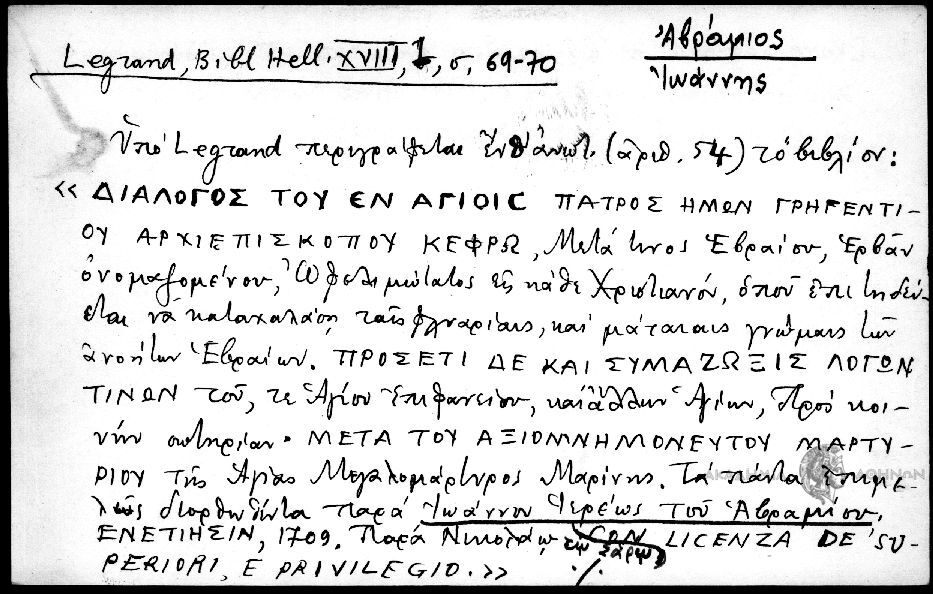 Legrand, Bibl Hell. XVIII, 1, σ. 69-70
Ἀβράμιος
Ἰωάννης
Ὑπὸ Legrand περιγράφεται ἐνθ' ἀνωτ. (ἀριθ. 54) τὸ βιβλίον:
«ΔΙΑΛΟΓΟΣ ΤΟΥ ΕΝ ΑΓΙΟΙC ΠΑΤΡΟΣ ΗΜΩΝ ΓΡΗΓΕΝΤΙ-
ΟΥ ΑΡΧΙΕΠΙΣΚΟΠΟΥ ΚΕΦΡΩ, Μετά τινος Ἑβραίου, Ἑρβᾶν
ὀνομαζομένου, Ὠφελιμώτατος εἰς κάθε Χριστιανόν, ὁποῦ ἐπιτηδεύ-
εται νὰ καταχαλάσῃ ταῖς φλυαρίαις, καὶ μάταιαις γνώμαις τῶν
ἀνοήτων Ἑβραίων. ΠΡΟΣΕΤΙ ΔΕ ΚΑΙ ΣΥΜΑΖΩΞΙΣ ΛΟΓΩΝ
ΤΙΝΩΝ τοῦ, τε Ἁγίου Ἐπιφανείου, καὶ ἄλλων Ἁγίων, Πρὸς κοι-
νὴν σωτηρίαν· ΜΕΤΑ ΤΟΥ ΑΞΙΟΜΝΗΜΟΝΕΥΤΟΥ ΜΑΡΤΥ-
ΡΙΟΥ τῆς Ἁγίας Μεγαλομάρτυρος Μαρίνης. Τὰ πάντα ἐπιμε-
λῶς διορθωθέντα παρὰ Ἰωάννου Ἱερέως τοῦ Ἀβραμίου.
ΕΝΕΤΙΗΣΙΝ, 1709. Παρὰ Νικολάῳ τῷ Σάρῳ CON LICENZA DE' SU-
PERIORI, E PRIVILEGIO.»
·/.